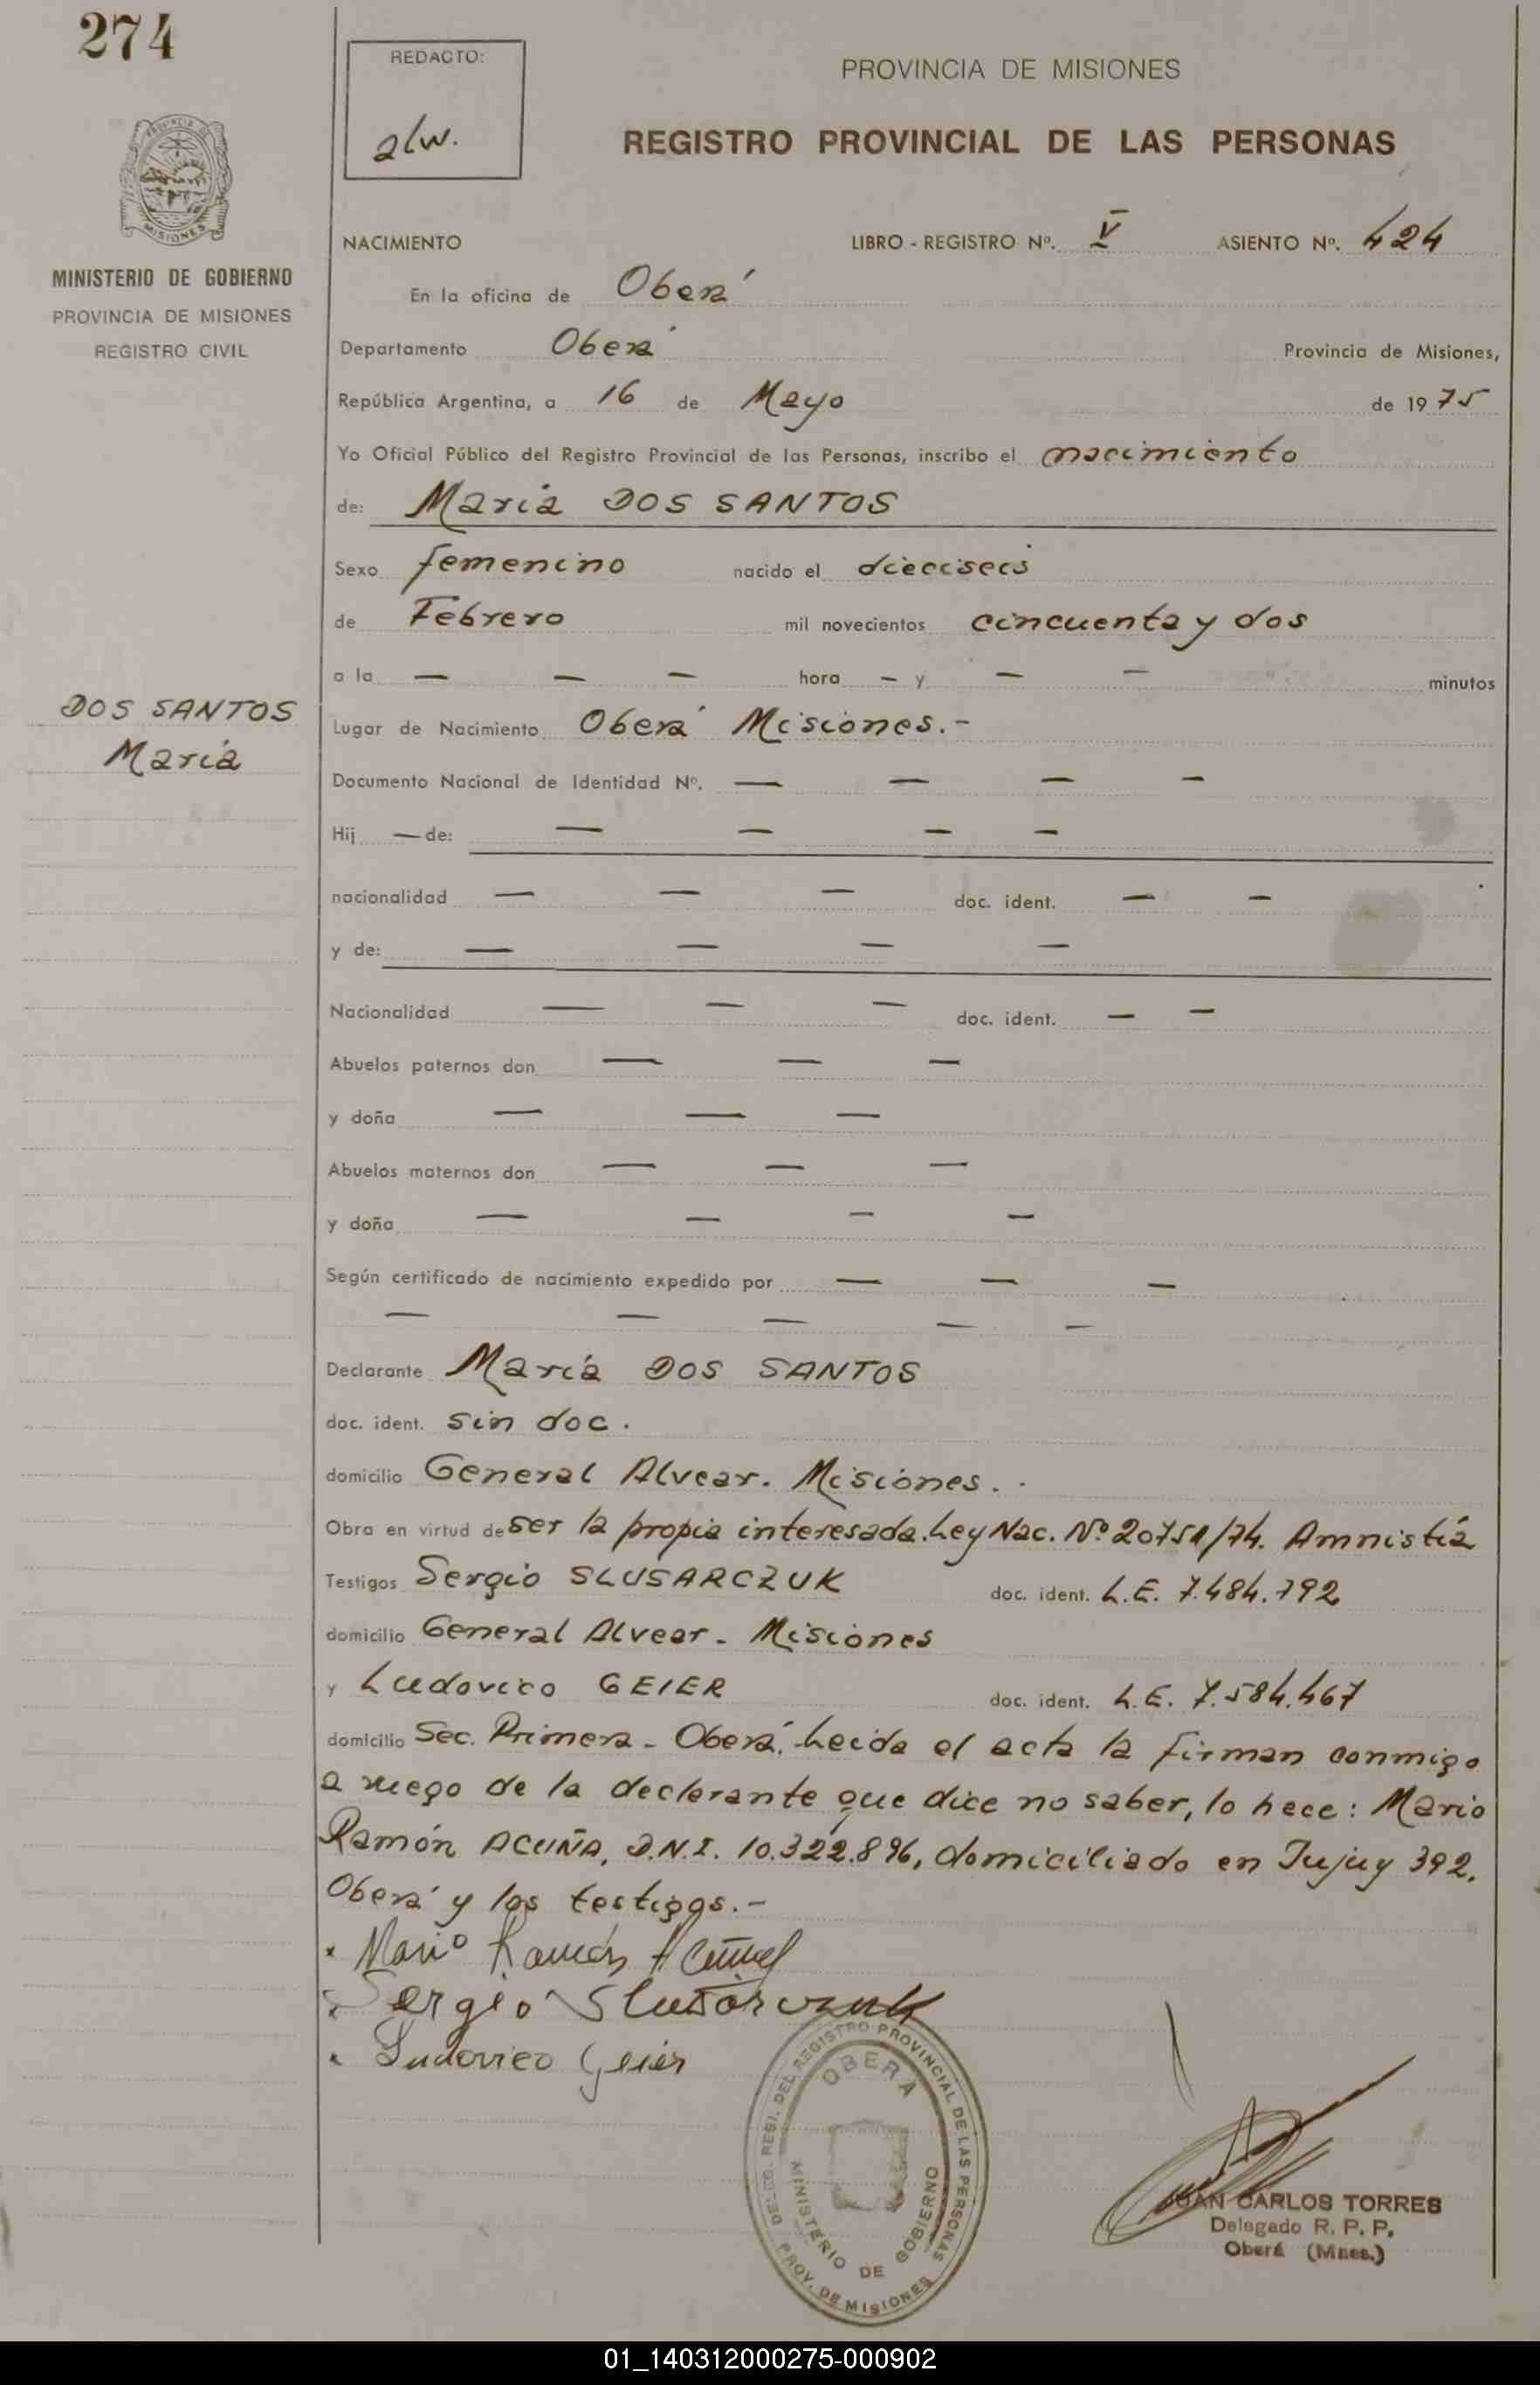 274
REDACTO:
alw.
PROVINCIA DE MISIONES
REGISTRO PROVINCIAL DE LAS PERSONAS
MISIONES
MINISTERIO DE GOBIERNO
PROVINCIA DE MISIONES
REGISTRO CIVIL
NACIMIENTO LIBRO - REGISTRO Nº. V ASIENTO Nº. 424
En la oficina de Oberá
Departamento Oberá Provincia de Misiones,
República Argentina, a 16 de Mayo de 1975
Yo Oficial Público del Registro Provincial de las Personas, inscribo el nacimiento
de: María DOS SANTOS
Sexo femenino nacido el dieciseis
de Febrero mil novecientos cincuenta y dos
a la — — — hora — y — — minutos
DOS SANTOS
María
Lugar de Nacimiento Oberá Misiones.-
Documento Nacional de Identidad Nº. — — — —
Hij — de: — — — —
nacionalidad — — — doc. ident. — —
y de: — — — —
Nacionalidad — — — doc. ident. — —
Abuelos paternos don — — —
y doña — — —
Abuelos maternos don — — —
y doña — — — —
Según certificado de nacimiento expedido por — — —
— — — — —
Declarante María DOS SANTOS
doc. ident. sin doc.
domicilio General Alvear. Misiones.
Obra en virtud de ser la propia interesada. Ley Nac. Nº 20751/74. Amnistía
Testigos Sergio SLUSARCZUK doc. ident. L.E. 7.484.792
domicilio General Alvear - Misiones
y Ludovico GEIER doc. ident. L.E. 7.584.467
domicilio Sec. Primera - Oberá. Leida el acta la firman conmigo
a ruego de la declarante que dice no saber, lo hace: Mario
Ramón ACUÑA, D.N.I. 10.322.896, domiciliado en Jujuy 392.
Oberá y los testigos.-
x Mario Ramón Acuña
x Sergio Slusarczuk
x Ludovico Geier
DELEG. REGI. DEL REGISTRO PROVINCIAL DE LAS PERSONAS
OBERA
MINISTERIO DE GOBIERNO
PROV. DE MISIONES
JUAN CARLOS TORRES
Delegado R. P. P.
Oberá (Mnes.)
01_140312000275-000902